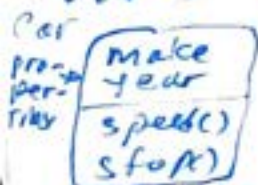 Car
pro-
per-
ties
make
year
speed()
stop()